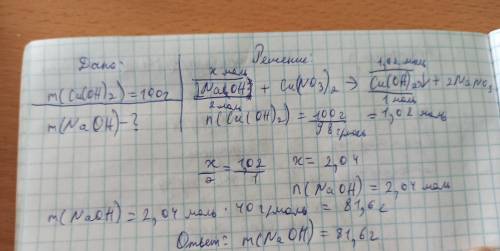 Дано:
m(Cu(OH)₂)=100г
m(NaOH)-?
Решение:
x моль 1,02 моль
2NaOH + Cu(NO₃)₂ → Cu(OH)₂↓ + 2NaNO₃
2 моль 1 моль
n(Cu(OH)₂) = 100г/98г/моль = 1,02 моль
x/2 = 1,02/1 x = 2,04
n(NaOH) = 2,04 моль
m(NaOH) = 2,04 моль · 40 г/моль = 81,6г
Ответ: m(NaOH) = 81,6г